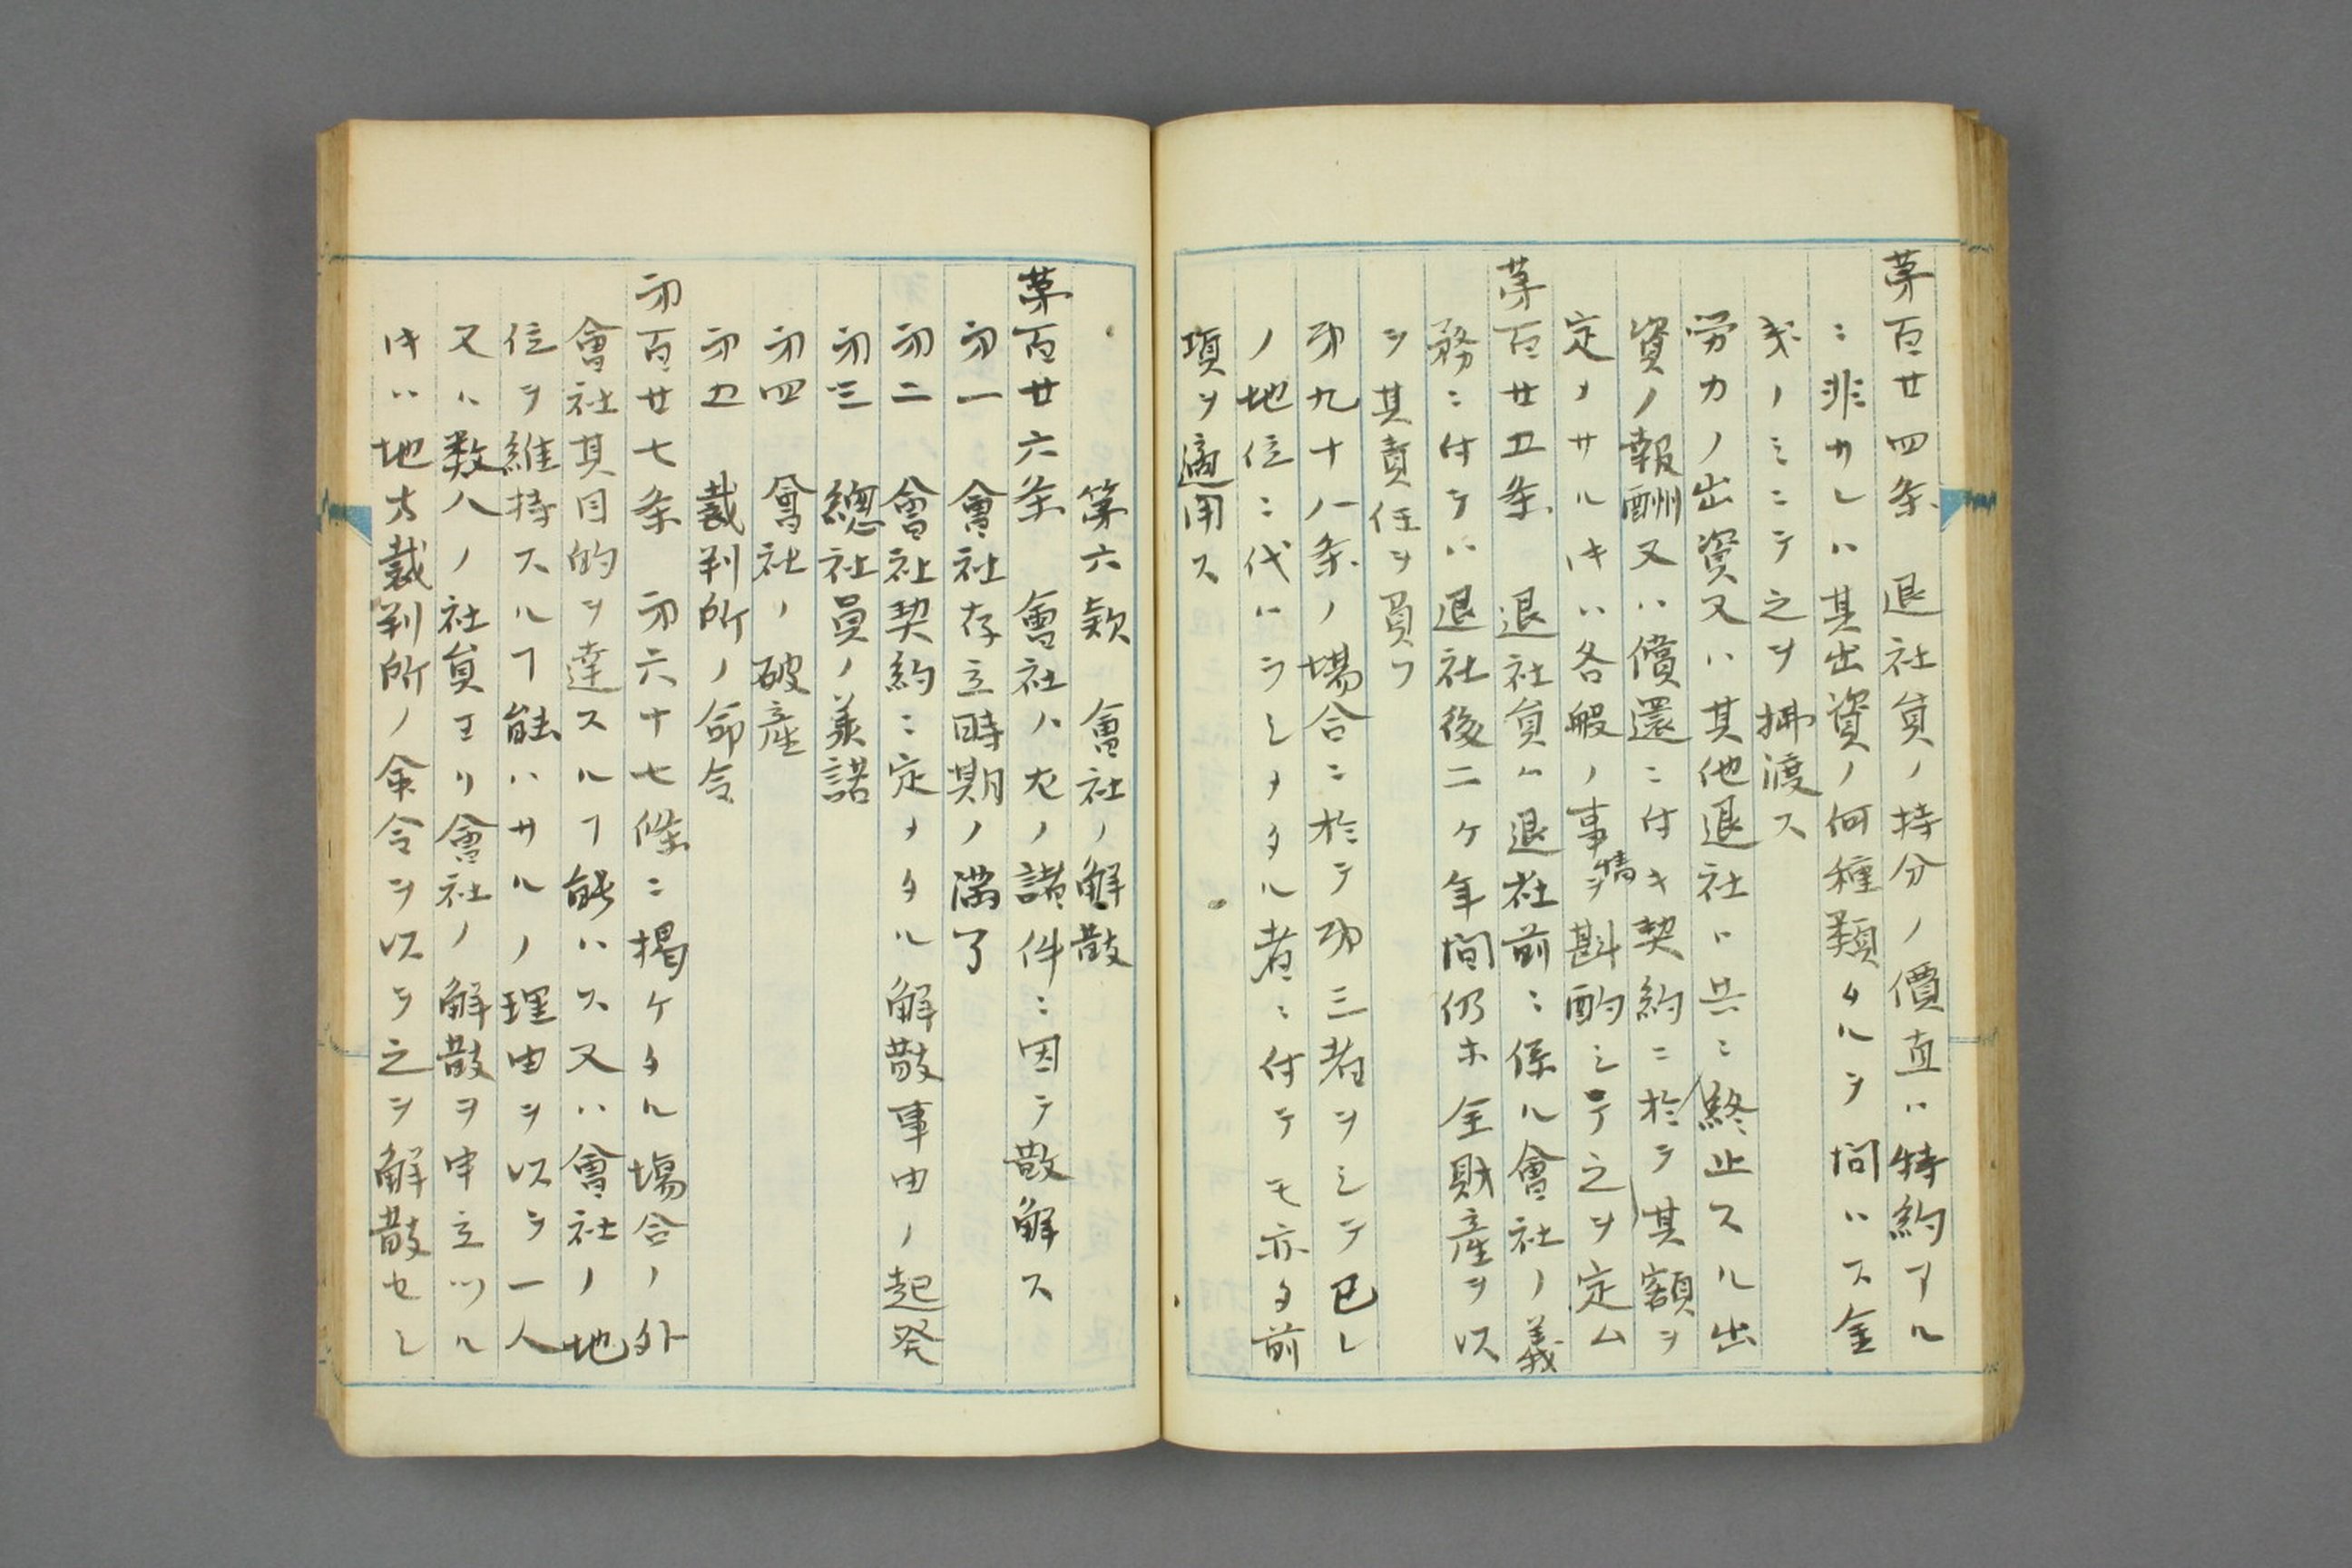 第百廿四条　退社員ノ持分ノ價直ハ特約アル
ニ非サレハ其出資ノ何種類タルヲ問ハス金
銭ノミニテ之ヲ拂渡ス
労力ノ出資又ハ其他退社ト共ニ終止スル出
資ノ報酬又ハ償還ニ付キ契約ニ於テ其額ヲ
定メサルトキハ各般ノ事情ヲ斟酌シテ之ヲ定ム
第百廿五条　退社員ハ退社前ニ係ル會社ノ義
務ニ付テハ退社後二ヶ年間仍ホ全財産ヲ以
テ其責任ヲ負フ
第九十八条ノ場合ニ於テ第三者ヲシテ己レ
ノ地位ニ代ハラシメタル者ニ付テモ亦タ前
項ヲ適用ス
第六款　會社ノ解散
第百廿六条　會社ハ左ノ諸件ニ因テ散解ス
第一　會社存立時期ノ満了
第二　會社契約ニ定メタル解散事由ノ起発
第三　總社員ノ承諾
第四　會社ノ破産
第五　裁判所ノ命令
第百廿七条　第六十七條ニ掲ケタル場合ノ外
會社其目的ヲ達スルヿ能ハス又ハ會社ノ地
位ヲ維持スルヿ能ハサルノ理由ヲ以テ一人
又ハ数人ノ社員ヨリ會社ノ解散ヲ申立ツル
トキハ地方裁判所ノ命令ヲ以テ之ヲ解散セシ